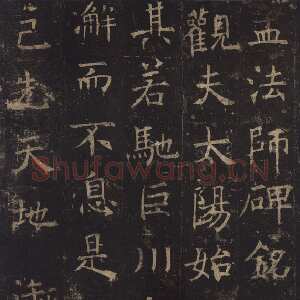 孟法師碑銘
觀夫太陽始
其若馳巨川
解而不息是
已先天地
Shufawang.CN